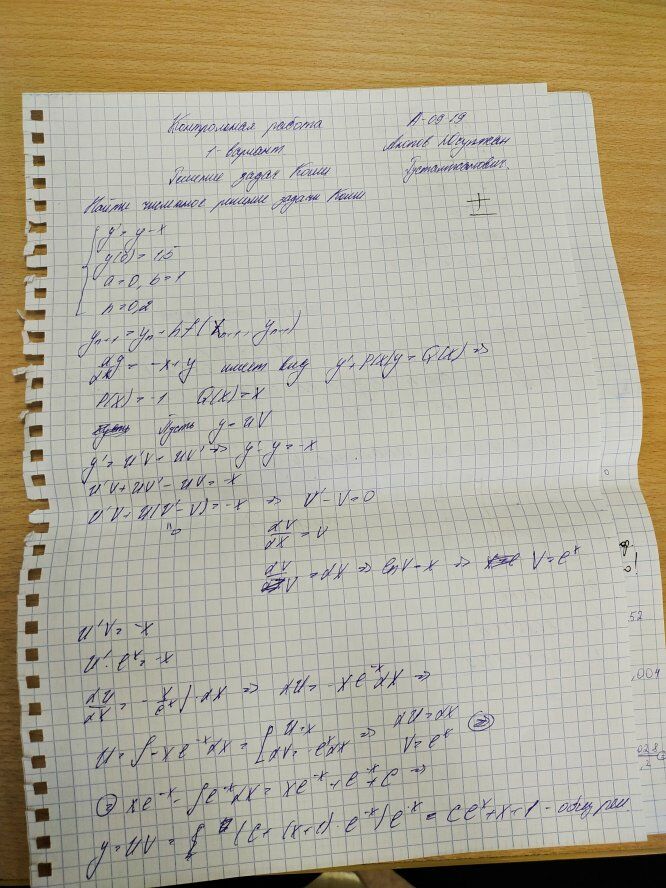 Контрольная работа А-09-19
1-вариант Юсупжан
Решение задач Коши
Найти численное решение задачи Коши
±
y' = y-x
y(0) = 1,5
a=0, b=1
h=0,2
y_{n+1} = y_n + hf(x_{n+1}, y_{n+1})
dy/dx = -x+y имеет вид y'+P(x)y = Q(x) ⇒
P(x) = -1 Q(x) = x
Пусть y = uV
y' = u'V + uV' ⇒ y'-y = -x
u'V + uV' - uV = -x
u'V + u(V'-V) = -x ⇒ V'-V=0
"0
dV/dx = V
dV/V = dx ⇒ lnV = x ⇒ V = e^x
u'V = -x
u'·e^x = -x
52
du/dx = -x/e^x ·dx ⇒ du = -xe^{-x}dx ⇒
,004
u = ∫-xe^{-x}dx = { u=x du=dx
dV = -e^{-x}dx ⇒ V=e^{-x} ⊜
028
,2
⊜ xe^{-x} - ∫e^{-x}dx = xe^{-x} + e^{-x} + C ⇒
y = uV = (C + (x+1)·e^{-x})e^{-x} = Ce^x + x + 1 - общ реш